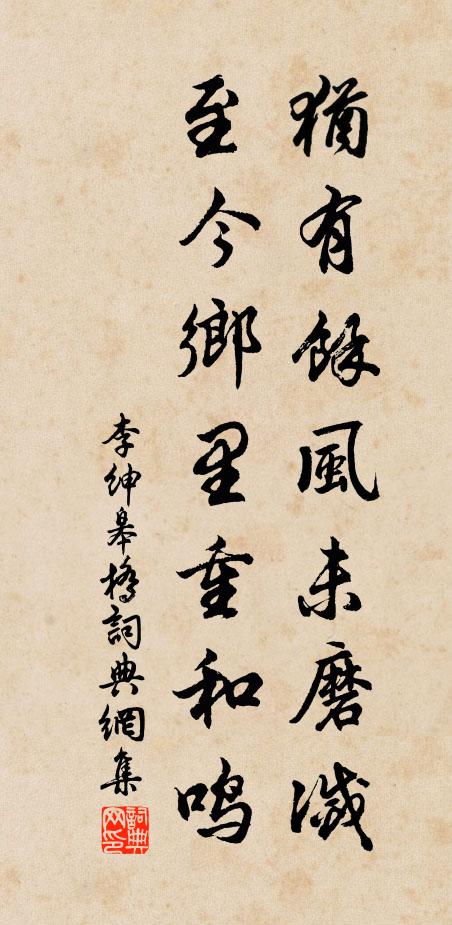 猶有餘風未磨滅
至今鄉里重和鳴
李紳皋橋詞典網集
詞典網印